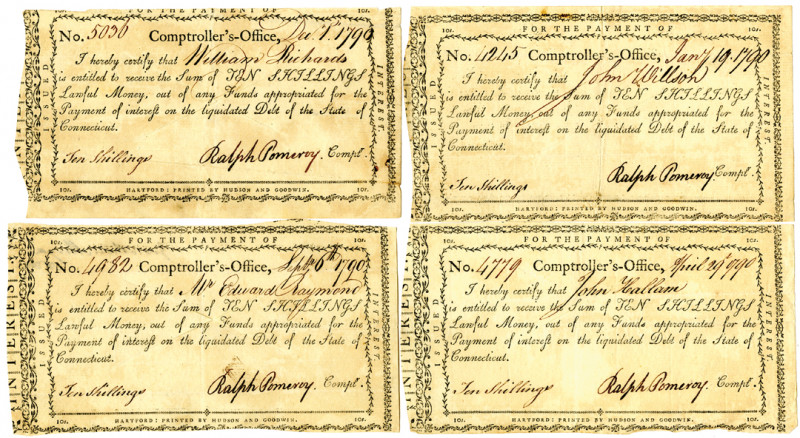 FOR THE PAYMENT OF
No. 5050 Comptroller's-Office, Dec 1. 1790
I hereby certify that William Richards
is entitled to receive the Sum of TEN SHILLINGS
Lawful Money, out of any Funds appropriated for the
Payment of interest on the liquidated Debt of the State of
Connecticut.
Ten Shillings Ralph Pomeroy. Compl.
10s. 10s.
HARTFORD: PRINTED BY HUDSON AND GOODWIN.
ISSUED
INTEREST.
10s. FOR THE PAYMENT OF 10s.
No. 4245 Comptroller's-Office, Jany 19, 1790
I hereby certify that John Wilson
is entitled to receive the Sum of TEN SHILLINGS
Lawful Money, out of any Funds appropriated for the
Payment of interest on the liquidated Debt of the State of
Connecticut.
Ten Shillings Ralph Pomeroy Compl.
10s. HARTFORD: PRINTED BY HUDSON AND GOODWIN. 10s.
ISSUED
INTEREST.
10s. FOR THE PAYMENT OF 10s.
No. 4982 Comptroller's-Office, Septr 6th 1790
I hereby certify that Mr Edward Raymond
is entitled to receive the Sum of TEN SHILLINGS
Lawful Money, out of any Funds appropriated for the
Payment of interest on the liquidated Debt of the State of
Connecticut.
Ten Shillings Ralph Pomeroy. Compl.
10s. HARTFORD: PRINTED BY HUDSON AND GOODWIN. 10s.
ISSUED
INTEREST.
10s. FOR THE PAYMENT OF 10s.
No. 4779 Comptroller's-Office, April 29 1790
I hereby certify that John Hallam
is entitled to receive the Sum of TEN SHILLINGS
Lawful Money, out of any Funds appropriated for the
Payment of interest on the liquidated Debt of the State of
Connecticut.
Ten Shillings Ralph Pomeroy. Compl.
10s. HARTFORD: PRINTED BY HUDSON AND GOODWIN. 10s.
ISSUED
INTEREST.